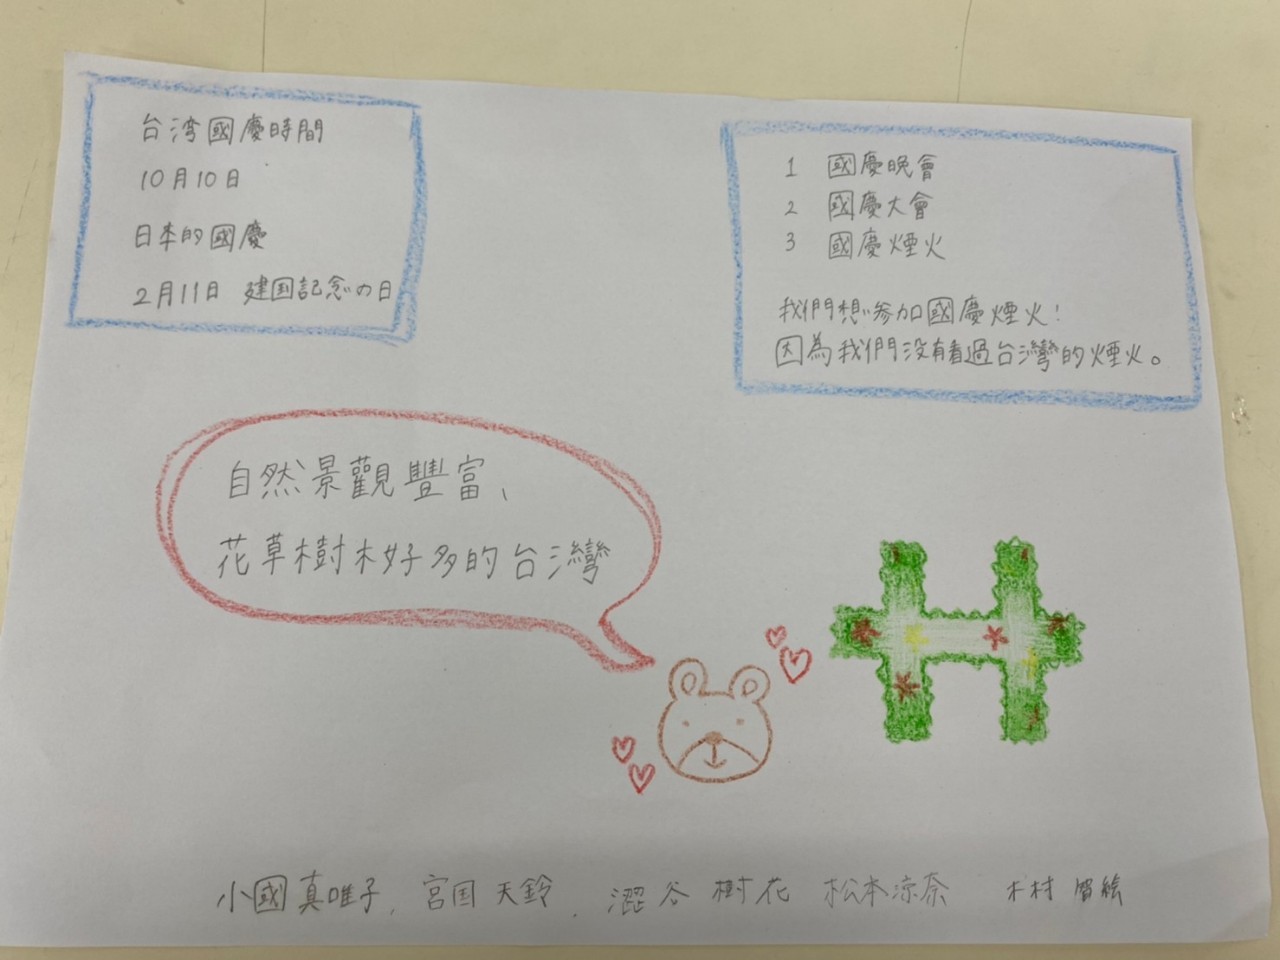 台湾國慶時間
10月10日
日本的國慶
2月11日 建国記念の日
1 國慶晚會
2 國慶大會
3 國慶煙火
我們想參加國慶煙火！
因為我們沒有看過台灣的煙火。
自然景觀豐富、
花草樹木好多的台灣
小國真唯子, 宮国天鈴, 澀谷樹花 松本涼奈 木村 絵